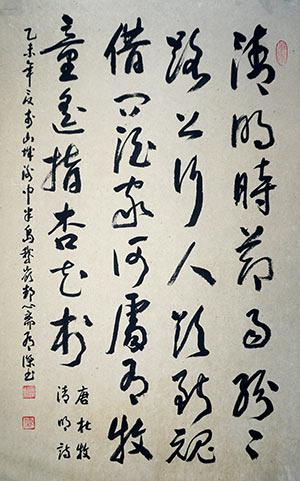 清明時節雨紛〻
路上行人欲斷魂
借問酒家何處有牧
童遙指杏花村
唐杜牧
清明詩
乙未年夏於山城渝中半島鵝嶺心齋